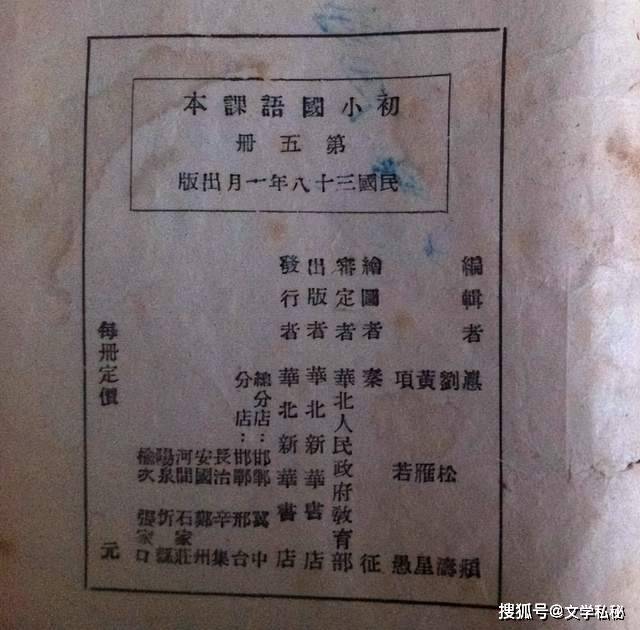 初小國語課本
第五冊
民國三十八年一月出版
編輯者
劉松濤
黃雁星
項若愚
繪圖者 秦征
審定者 華北人民政府教育部
出版者 華北新華書店
發行者 華北新華書店
總分店：邯鄲 冀中
分店：邯鄲 邢台
長治 辛集
安國 鄭州
河間 石家莊
陽泉 忻縣
榆次 張家口
每冊定價 元
搜狐号@文学私秘